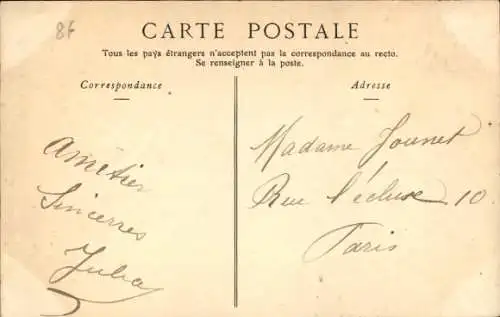 86
CARTE POSTALE
Tous les pays étrangers n'acceptent pas la correspondance au recto.
Se renseigner à la poste.
Correspondance
Amitiés
Sincerres
Adresse
Madame Jounet
Rue l'écluse 10
Paris